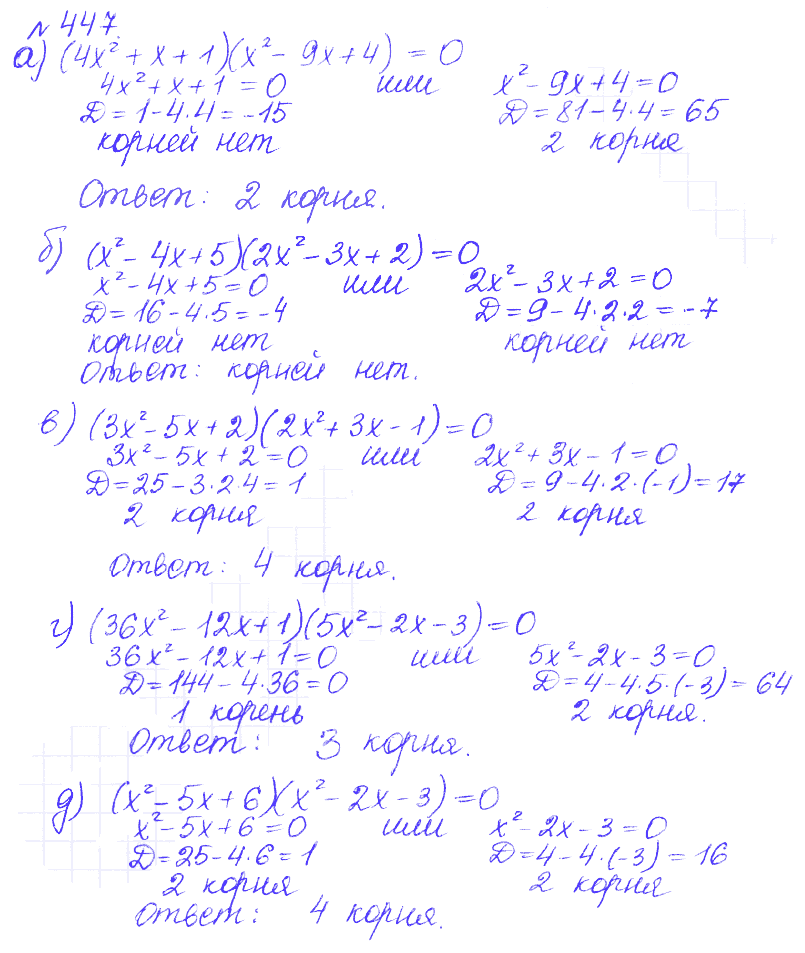 № 447.
а) (4x² + x + 1)(x² - 9x + 4) = 0
4x² + x + 1 = 0 или x² - 9x + 4 = 0
D = 1 - 4·4 = -15 D = 81 - 4·4 = 65
корней нет 2 корня
Ответ: 2 корня.
б) (x² - 4x + 5)(2x² - 3x + 2) = 0
x² - 4x + 5 = 0 или 2x² - 3x + 2 = 0
D = 16 - 4·5 = -4 D = 9 - 4·2·2 = -7
корней нет корней нет
Ответ: корней нет.
в) (3x² - 5x + 2)(2x² + 3x - 1) = 0
3x² - 5x + 2 = 0 или 2x² + 3x - 1 = 0
D = 25 - 3·2·4 = 1 D = 9 - 4·2·(-1) = 17
2 корня 2 корня
Ответ: 4 корня.
г) (36x² - 12x + 1)(5x² - 2x - 3) = 0
36x² - 12x + 1 = 0 или 5x² - 2x - 3 = 0
D = 144 - 4·36 = 0 D = 4 - 4·5·(-3) = 64
1 корень 2 корня.
Ответ: 3 корня.
д) (x² - 5x + 6)(x² - 2x - 3) = 0
x² - 5x + 6 = 0 или x² - 2x - 3 = 0
D = 25 - 4·6 = 1 D = 4 - 4·(-3) = 16
2 корня 2 корня
Ответ: 4 корня.